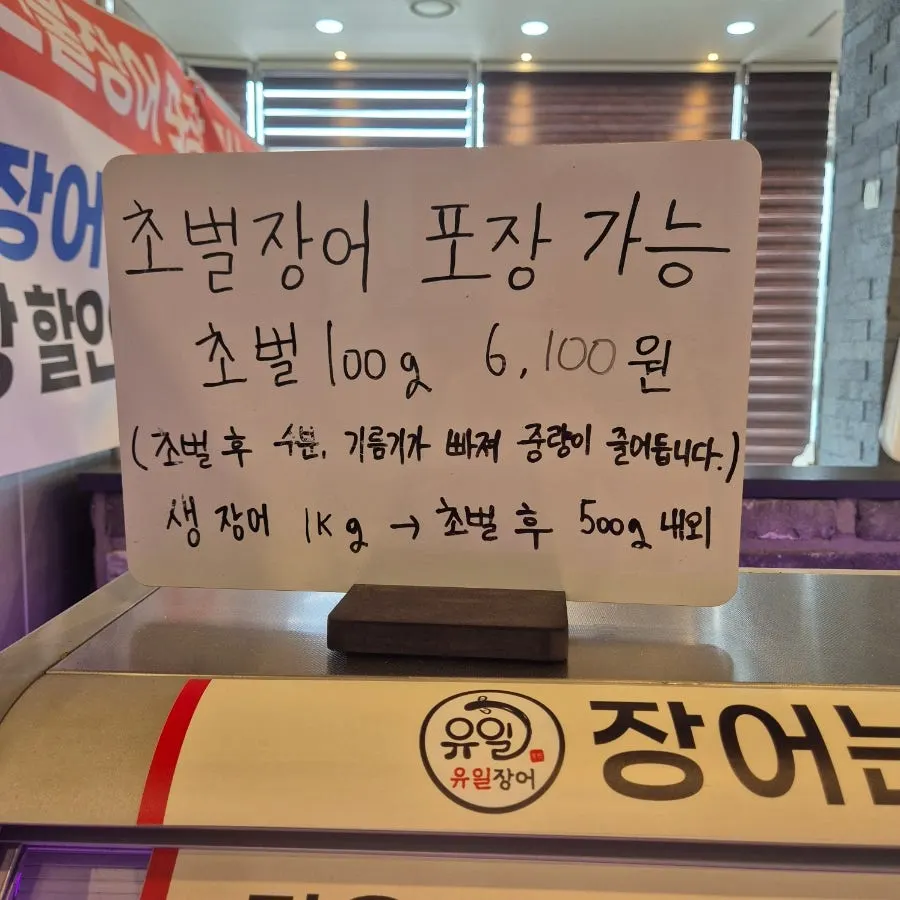 장어
할인
초벌장어 포장 가능
초벌 100g 6,100원
(초벌 후 수분, 기름기가 빠져 중량이 줄어듭니다.)
생 장어 1Kg → 초벌 후 500g 내외
유일
유일장어
장어는